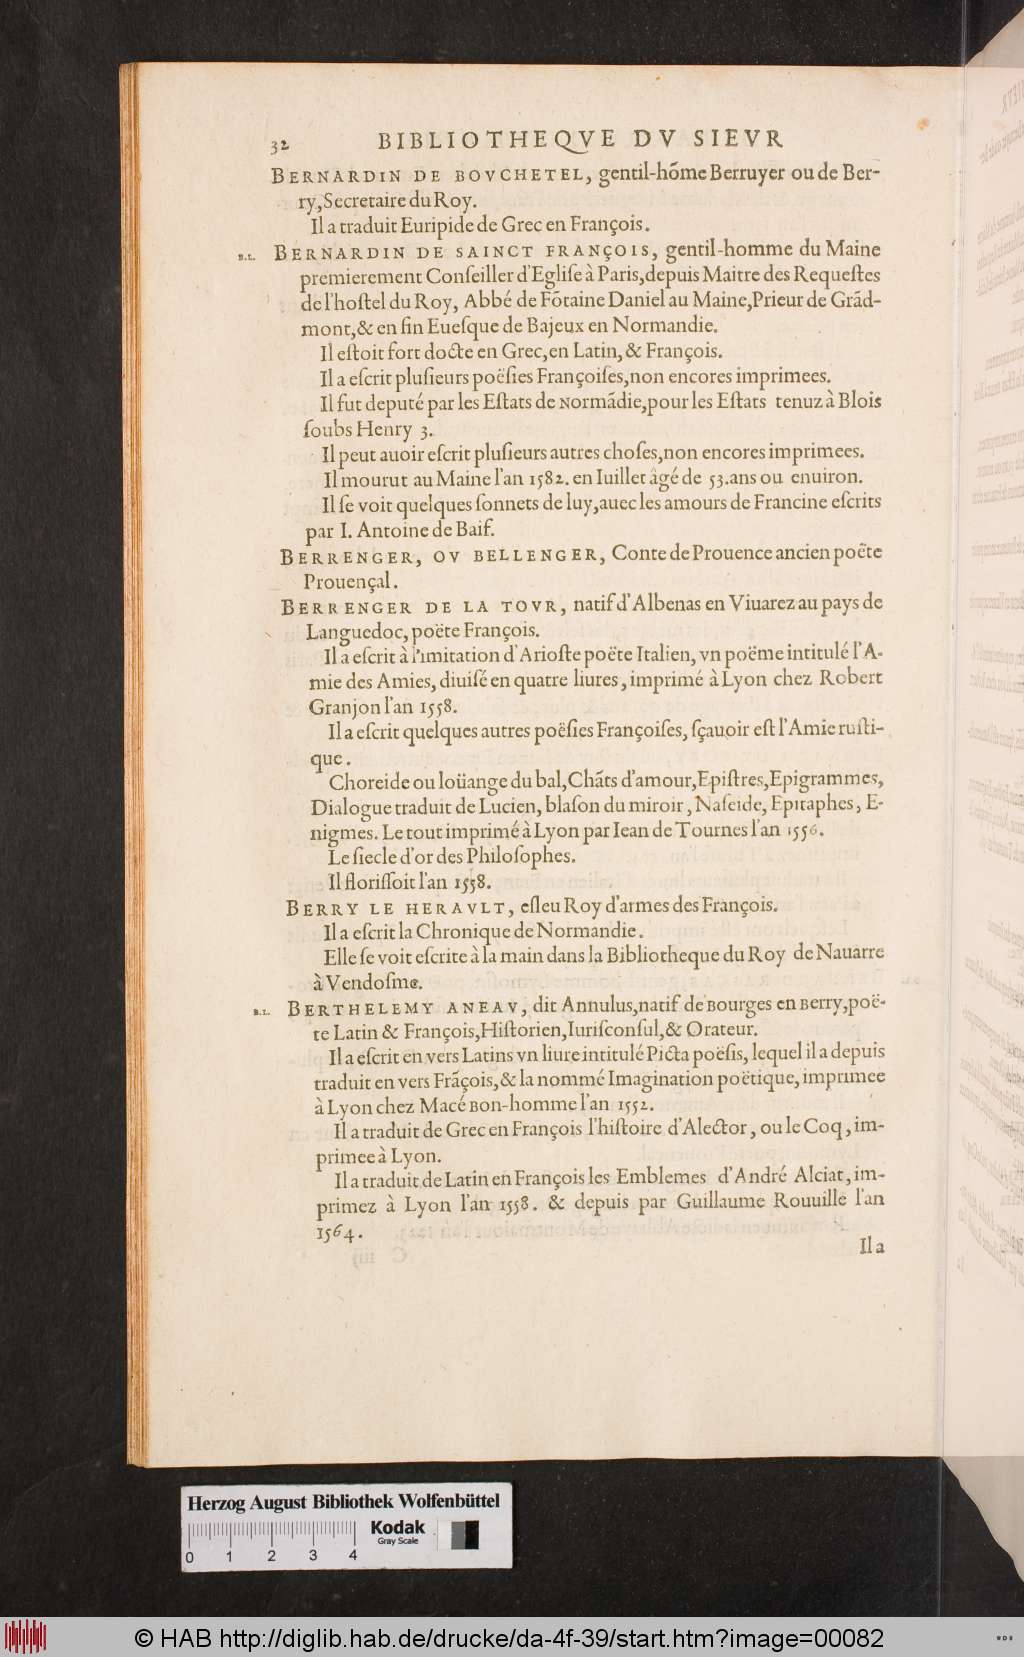 32 BIBLIOTHEQVE DV SIEVR
BERNARDIN DE BOVCHETEL, gentil-hõme Berruyer ou de Ber-
ry, Secretaire du Roy.
Il a traduit Euripide de Grec en François.
B.L. BERNARDIN DE SAINCT FRANÇOIS, gentil-homme du Maine
premierement Conſeiller d'Egliſe à Paris, depuis Maitre des Requeſtes
de l'hoſtel du Roy, Abbé de Fõtaine Daniel au Maine, Prieur de Grãd-
mont, & en fin Eueſque de Bajeux en Normandie.
Il eſtoit fort docte en Grec, en Latin, & François.
Il a eſcrit pluſieurs poëſies Françoiſes, non encores imprimees.
Il fut deputé par les Eſtats de Normãdie, pour les Eſtats tenuz à Blois
ſoubs Henry 3.
Il peut auoir eſcrit pluſieurs autres choſes, non encores imprimees.
Il mourut au Maine l'an 1582. en Iuillet âgé de 53. ans ou enuiron.
Il ſe voit quelques ſonnets de luy, auec les amours de Francine eſcrits
par I. Antoine de Baif.
BERRENGER, OV BELLENGER, Conte de Prouence ancien poëte
Prouençal.
BERRENGER DE LA TOVR, natif d'Albenas en Viuarez au pays de
Languedoc, poëte François.
Il a eſcrit à l'imitation d'Arioſte poëte Italien, vn poëme intitulé l'A-
mie des Amies, diuiſé en quatre liures, imprimé à Lyon chez Robert
Granjon l'an 1558.
Il a eſcrit quelques autres poëſies Françoiſes, ſçauoir eſt l'Amie ruſti-
que.
Choreide ou loüange du bal, Chãts d'amour, Epiſtres, Epigrammes,
Dialogue traduit de Lucien, blaſon du miroir, Naſeide, Epitaphes, E-
nigmes. Le tout imprimé à Lyon par Iean de Tournes l'an 1556.
Le ſiecle d'or des Philoſophes.
Il floriſſoit l'an 1558.
BERRY LE HERAVLT, eſleu Roy d'armes des François.
Il a eſcrit la Chronique de Normandie.
Elle ſe voit eſcrite à la main dans la Bibliotheque du Roy de Nauarre
à Vendoſme.
B.L. BERTHELEMY ANEAV, dit Annulus, natif de Bourges en Berry, poë-
te Latin & François, Hiſtorien, Iuriſconſul, & Orateur.
Il a eſcrit en vers Latins vn liure intitulé Picta poëſis, lequel il a depuis
traduit en vers Frãçois, & la nommé Imagination poëtique, imprimee
à Lyon chez Macé Bon-homme l'an 1552.
Il a traduit de Grec en François l'hiſtoire d'Alector, ou le Coq, im-
primee à Lyon.
Il a traduit de Latin en François les Emblemes d'André Alciat, im-
primez à Lyon l'an 1558. & depuis par Guillaume Rouuille l'an
1564.
Il a
Herzog August Bibliothek Wolfenbüttel
Kodak
Gray Scale
0 1 2 3 4
© HAB http://diglib.hab.de/drucke/da-4f-39/start.htm?image=00082